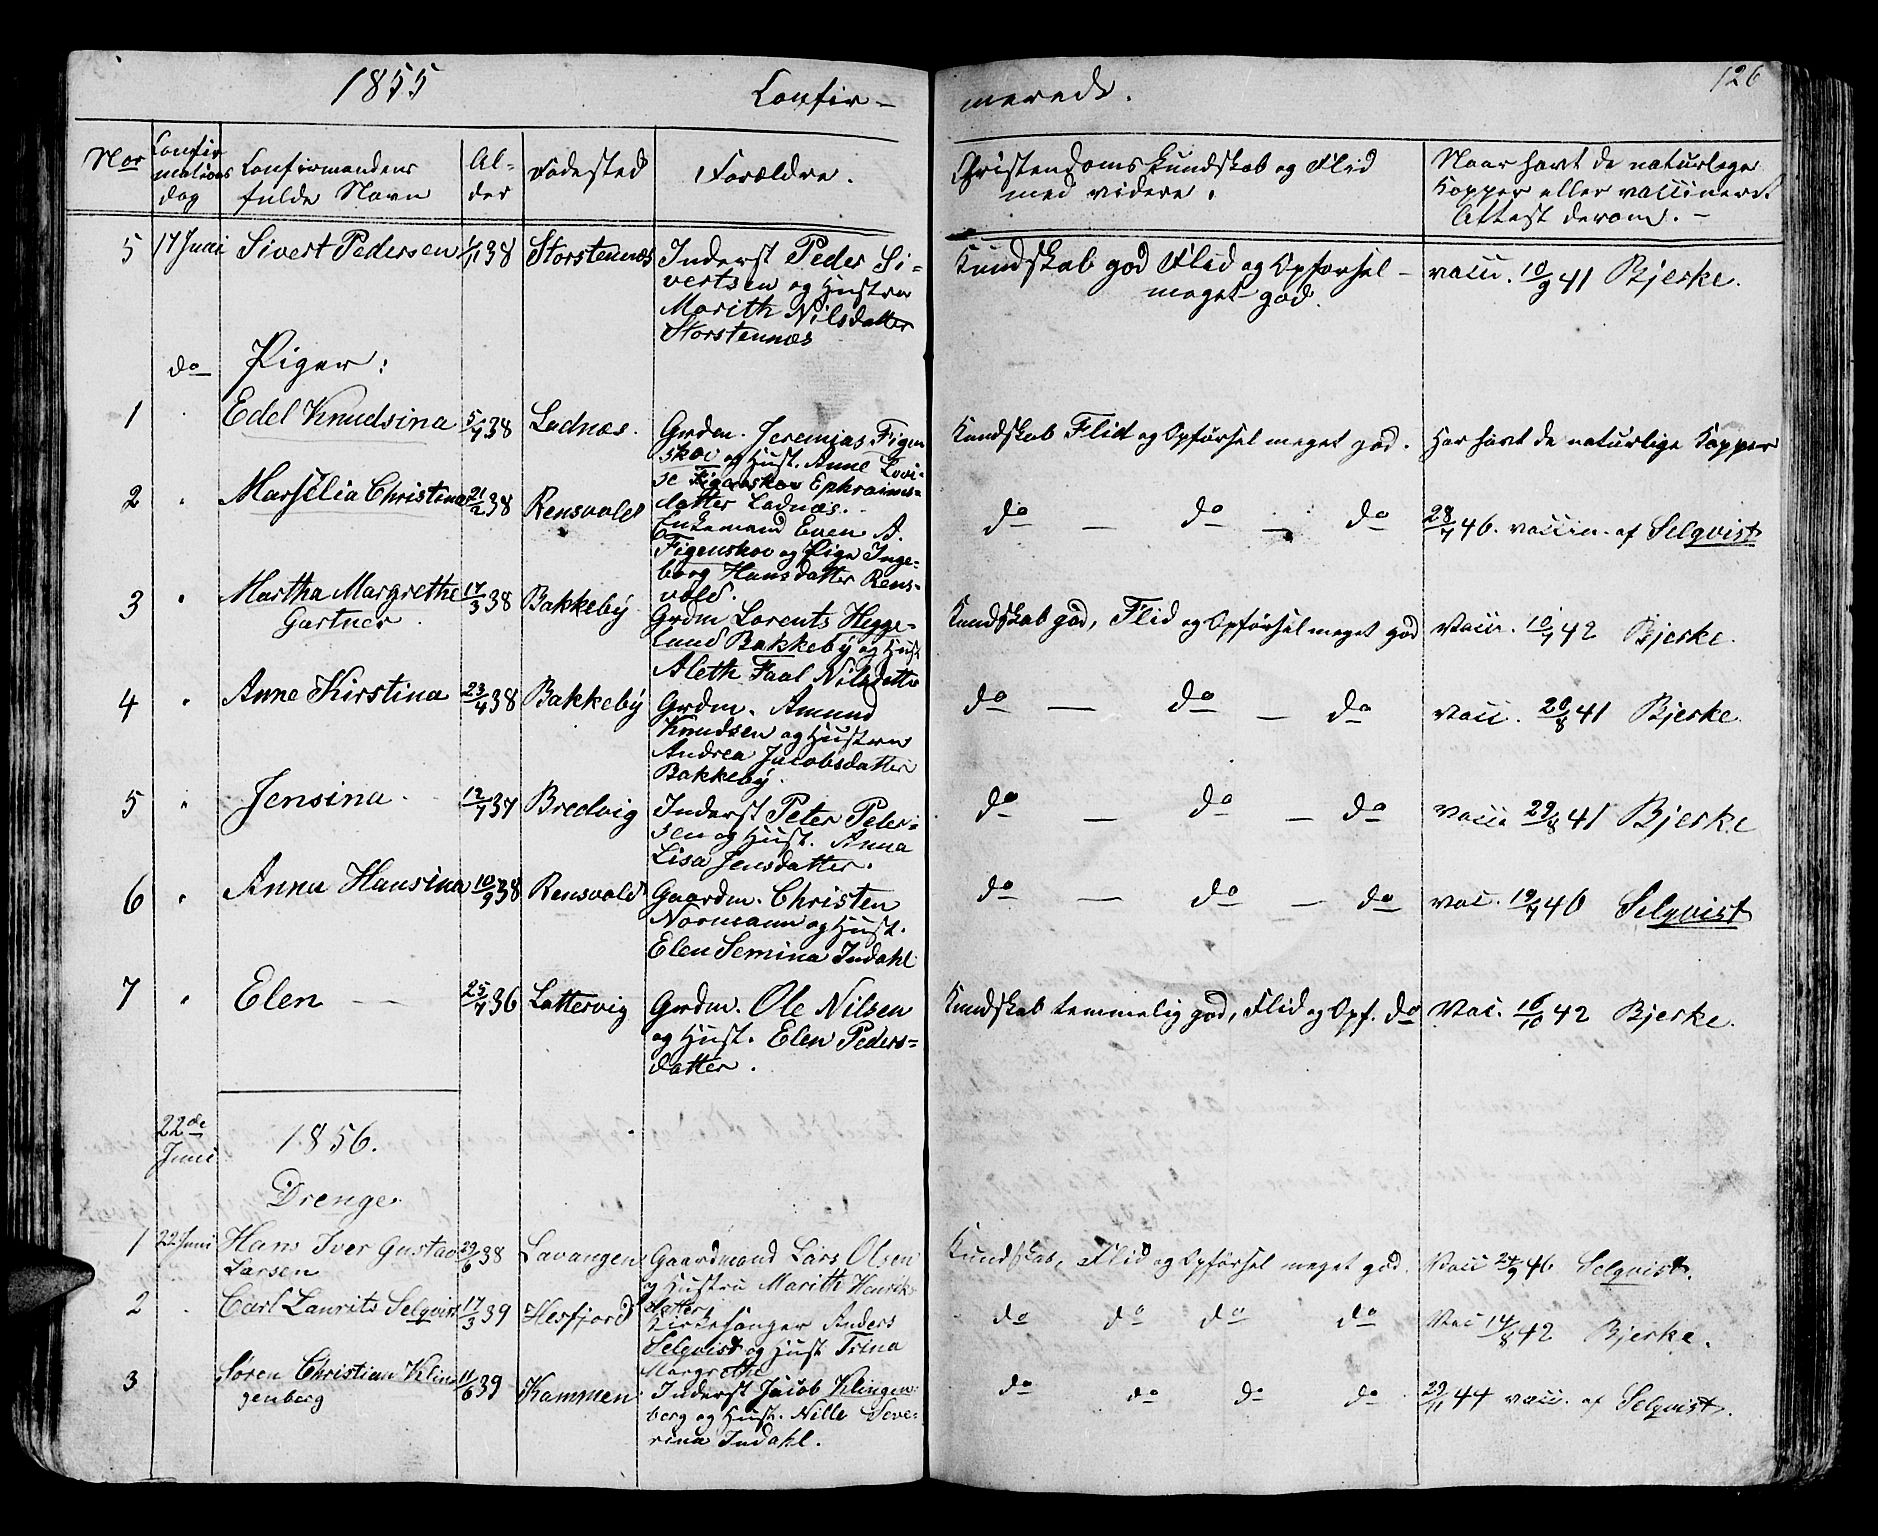 1855 Confir-
merede.
126
Nor
Confir
mations
dag
Confirmandens
fulde Navn
Al-
der
Fødested
Forældre.
Christendoms Kundskab og Flid
med videre.
Naar havt de naturlige
Kopper eller vaccineret
Attest derom. -
5 17 Juni Sivert Pedersen 1/11 38 Storstennæs
Inderst Peder Si-
vertsen og Hustru
Marith Nilsdatter
Storstennæs
Kundskab god Flid og Opførsel -
meget god.
vacc. 10/9 41 Bjerke.
do Piger:
1 Edel Knudsina 5/7 38 Ladnæs.
Grdm. Jeremias Figen
skov og Hust. Anne Lovi-
se Figenskov Ephraims-
datter Ladnæs.
Kundskab Flid og Opførsel meget god. Har havt de naturlige Kopper
2 " Marselia Christina 21/2 38 Rensvold
Enkemand Even A.
Figenskov og Pige Inge-
borg Hansdatter Rens-
vold.
do - do - do 28/7 46. vaccin. af Selqvist
3 " Martha Margrethe 17/3 38 Bakkeby
Gartner
Grdm Lorents Hegge-
lund Bakkeby og Hust
Aleth Faal Nilsdatte
Kundskab god, Flid og Opførsel meget god Vacc. 10/7 42 Bjerke.
4 " Anne Kirstina 23/4 38 Bakkeby
Grdm. Amund
Knudsen og Hustru
Andrea Jacobsdatter
Bakkeby.
do - do - do Vacc. 20/8 41 Bjerke.
5 " Jensina. 12/7 37 Bredvig
Inderst Peter Peter-
sen og Hust. Anna
Lisa Jensdatter.
do - do - do Vacc 29/8 41 Bjerke
6 " Anna Hansina 10/9 38 Rensvold
Gaardm. Christen
Normann og Hust.
Elen Semina Indahl
do - do - do Vac. 19/7 46 Selqvist
7 " Elen - 25/7 36 Lattervig
Grdm. Ole Nilsen
og Hust. Elen Peders-
datter.
Kundskab temmelig god, Flid og Opf. do Vac. 16/10 42 Bjerke.
22de
Juni
1856.
Drenge
1 22 Juni Hans Iver Gustav 29/6 38 Lavangen
Larsen
Gaardmand Lars Olsen
og Hustru Marith Henrik-
datter
Kundskab, Flid og Opførsel meget god. Vacc 24/9 46 Selqvist.
2 Carl Laurits Selqvist 17/3 39 Hesfjord
Kirkesanger Anders
Selqvist og Hust Trina
Margrethe
do do do do Vac 14/8 42 Bjerke.
3 Søren Christian Klin- 11/6 39 Kammen
genberg
Inderst Jacob Klingen-
berg og Hust. Nille Seve-
rina Indahl.
do do do do 29/11 44 vacc. af Selqvist.